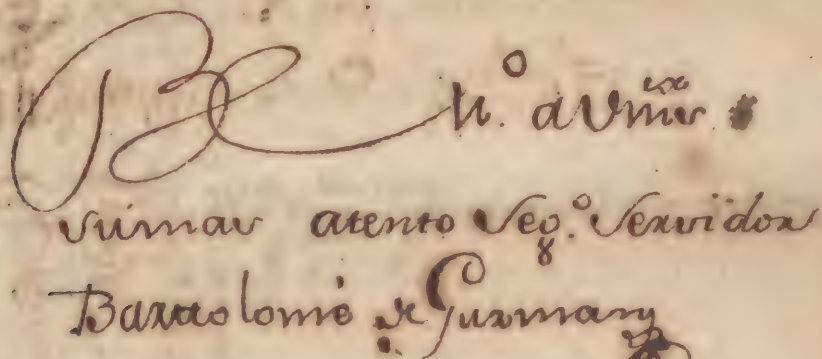 B l m.º a Vmr
su mas atento Seg.º Servidor
Barttolomè de Guzman